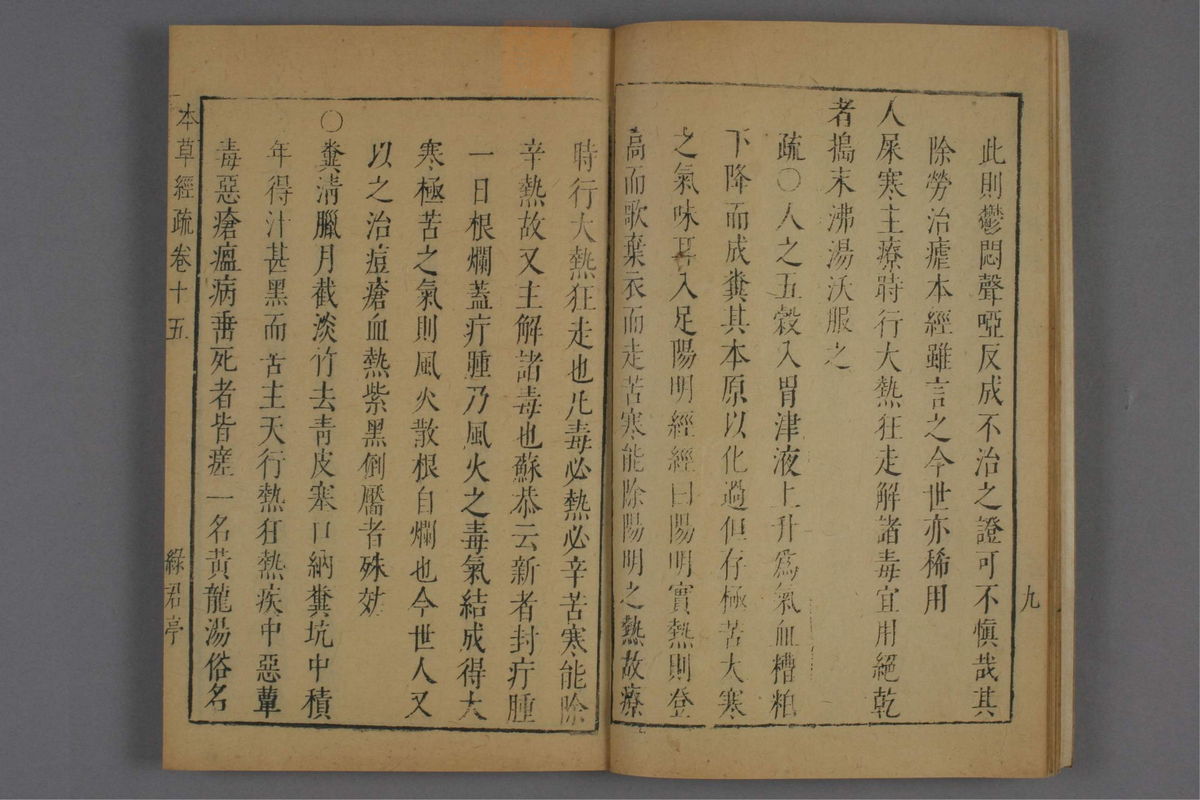 此則鬱悶聲啞反成不治之證可不愼哉其
除勞治瘧本經雖言之今世亦稀用
人屎寒主療時行大熱狂走解諸毒宜用絕乾
者搗末沸湯沃服之
疏○人之五穀入胃津液上升爲氣血糟粕
下降而成糞其本原以化過但存極苦大寒
之氣味耳入足陽明經經曰陽明實熱則登
高而歌棄衣而走苦寒能除陽明之熱故療
九
時行大熱狂走也凡毒必熱必辛苦寒能除
辛熱故又主解諸毒也蘇恭云新者封疔腫
一日根爛蓋疔腫乃風火之毒氣結成得大
寒極苦之氣則風火散根自爛也今世人又
以之治痘瘡血熱紫黑倒靨者殊効
○糞淸臘月截淡竹去靑皮塞口納糞坑中積
年得汁甚黑而苦主天行熱狂熱疾中惡蕈
毒惡瘡瘟病垂死者皆瘥一名黃龍湯俗名
本草經疏卷十五
綠君亭